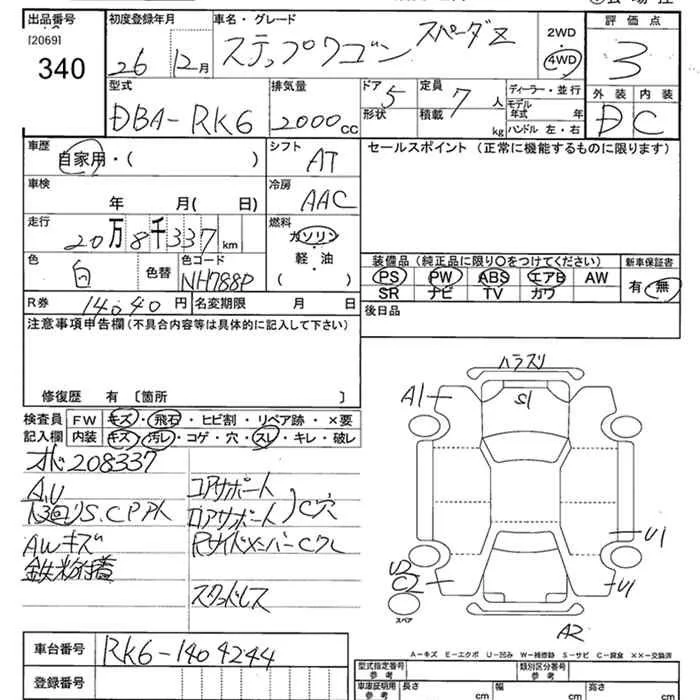 出品番号
[2069]
340
初度登録年月
26 12月
車名・グレード
ステップワゴン スパーダZ
2WD
4WD
評価点
3
外装 内装
D C
型式
DBA-RK6
排気量
2000cc
ドア 5
形状
定員 7人
積載 kg
ディーラー・並行
モデル年式 年
ハンドル 左・右
車歴
自家用・( )
シフト
AT
セールスポイント (正常に機能するものに限ります)
車検
年 月( 日)
冷房
AAC
走行
20万8千337km
燃料
ガソリン
軽・油
( )
色
白
色替
色コード
NH788P
装備品 (純正品に限り○をつけてください)
PS PW ABS エアB AW
SR ナビ TV カワ
新車保証書
有・無
R券 14040円
名変期限 月 日
後日品
注意事項申告欄 (不具合内容等は具体的に記入して下さい)
修復歴 有 〔箇所 〕
検査員記入欄
FW キズ・飛石・ヒビ割・リペア跡・×要
内装 キズ・汚レ・コゲ・穴・スレ・キレ・破レ
208337
A.U
AWキズ
鉄粉付着
コアサポート
ロアサポート
C穴
スタッドレス
ハラスリ
A1
S1
U1
U1
U2
C2
スペア
A2
A-キズ E-エクボ U-凹み W-補修跡 S-サビ C-腐食 ××-交換済
車台番号
RK6-1404244
登録番号
型式指定番号
参考
類別区分番号
参考
車庫証明用
参考
長さ cm
幅 cm
高さ cm